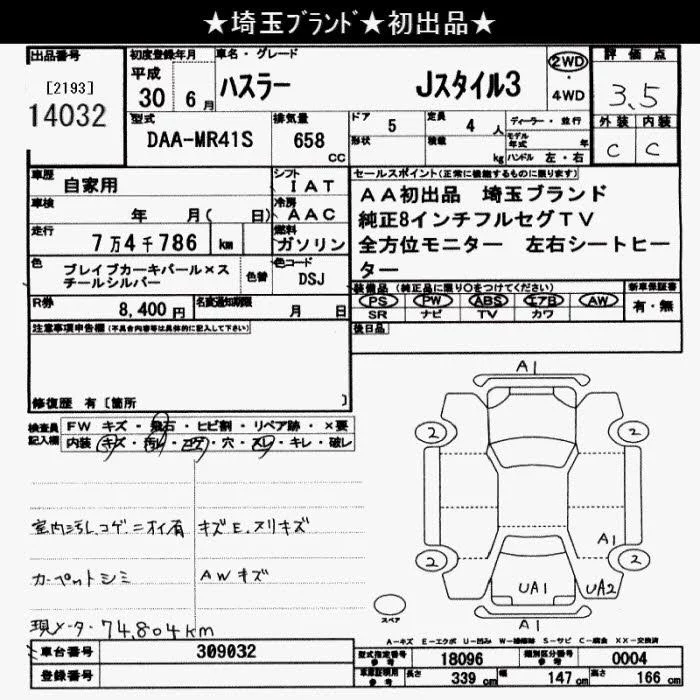 ★埼玉ﾌﾞﾗﾝﾄﾞ★初出品★
出品番号
[2193]
14032
初度登録年月
平成
30 6月
車名・グレード
ハスラー Jスタイル3
2WD
・
4WD
評価点
3.5
外装 内装
C C
型式
DAA-MR41S
排気量
658
CC
ドア
5
定員
4人
形状
積載
kg
ディーラー・並行
モデル年式 年
ハンドル 左・右
車歴
自家用
シフト
IAT
車検
年 月( 日)
冷房
AAC
走行
7万4千786 km
燃料
ガソリン
色
ブレイブカーキパール×スチールシルバー
色替
色コード
DSJ
R券
8,400円
名変通知期限
月 日
セールスポイント(正常に機能するものに限ります)
AA初出品 埼玉ブランド
純正8インチフルセグTV
全方位モニター 左右シートヒー
ター
装備品(純正品に限り○をつけてください)
新車保証書
PS PW ABS エアB AW
有・無
SR ナビ TV カワ
後日品
注意事項申告欄(不具合内容等は具体的に記入して下さい)
修復歴 有 [箇所 ]
検査員
記入欄
FW キズ・飛石・ヒビ割・リペア跡・×要
内装 キズ・汚レ・コゲ・穴・スレ・キレ・破レ
室内汚レ、コゲ ニオイ有
キズE.スリキズ
カーペットシミ
AWキズ
現メーター74,804km
A1
2 2
A1
2 2
UA1 UA2
A1
スペア
A-キズ E-エクボ U-凹み W-補修跡 S-サビ C-腐食 XX-交換済
車台番号
309032
登録番号
型式指定番号
参考
18096
類別区分番号
参考
0004
車庫証明用
参考
長さ 339 cm
幅 147 cm
高さ 166 cm